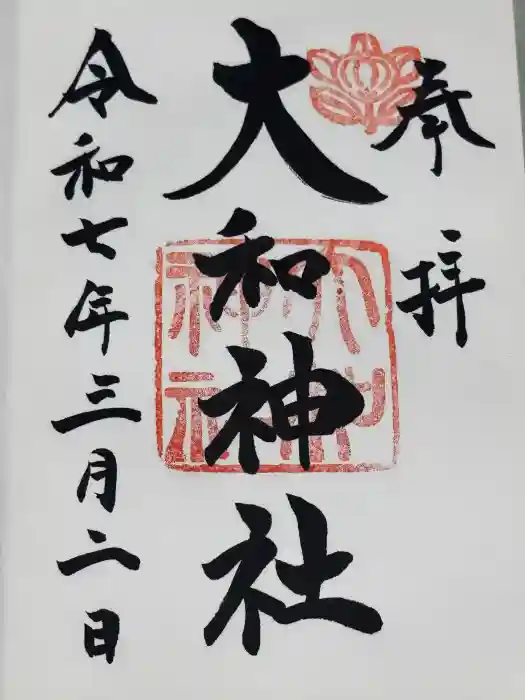 奉拝
大和神社
大和神社
令和七年三月二日